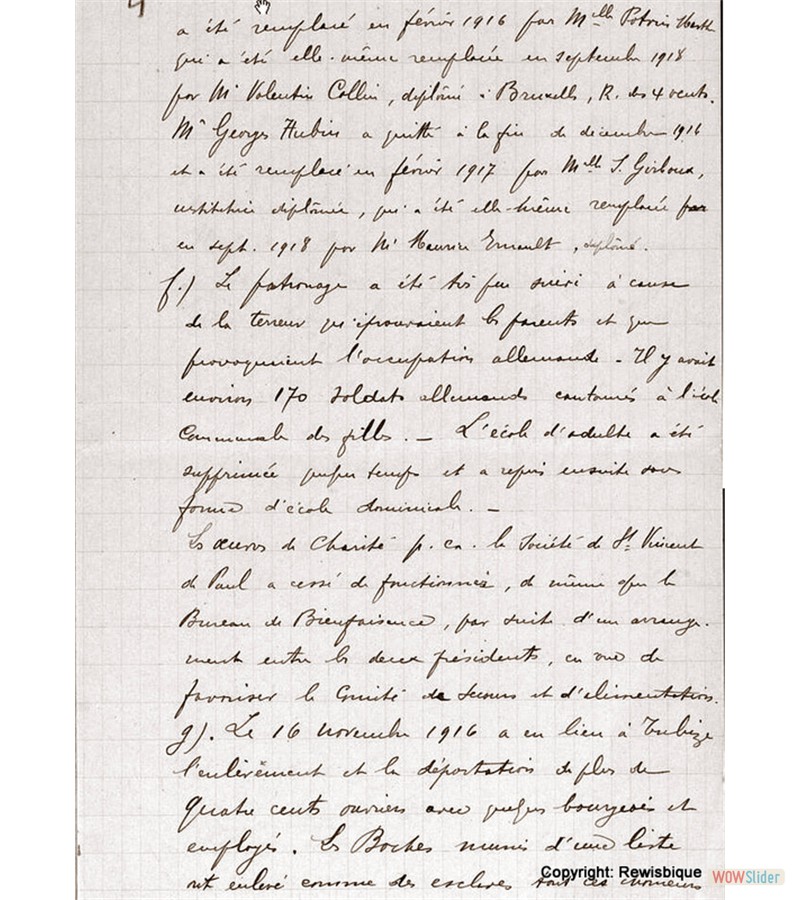 4
a été remplacé en février 1916 par Melle Potvin
qui a été elle-même remplacée en septembre 1918
par Mr Valentin Collin, diplômé à Bruxelles, R. des 4 vents.
Mr Georges Aubin a quitté à la fin de décembre 1916
et a été remplacé en février 1917 par Melle
institutrice diplômée, qui a été elle-même remplacée par
en sept. 1918 par Mr Maurice Ernault, diplômé.
f.) Le patronage a été très peu suivi à cause
de la terreur qu'éprouvaient les parents et que
provoquaient l'occupation allemande - Il y avait
environ 170 soldats allemands cantonnés à l'école
Communale des filles. — L'école d'adulte a été
supprimée quelque temps et a repris ensuite sous
forme d'école dominicale. —
Les œuvres de Charité p. ex. la Société de St Vincent
de Paul a cessé de fonctionner, de même que le
Bureau de Bienfaisance, par suite d'un arrange-
ment entre les deux présidents, en vue de
favoriser le Comité de Secours et d'alimentation.
g). Le 16 novembre 1916 a eu lieu à Tubize
l'enlèvement et la déportation de plus de
quatre cents ouvriers avec quelques bourgeois et
employés. Les Boches munis d'une liste
ont enlevé comme des esclaves tout ces chomeurs
Copyright: Rewisbique
WOWSlider